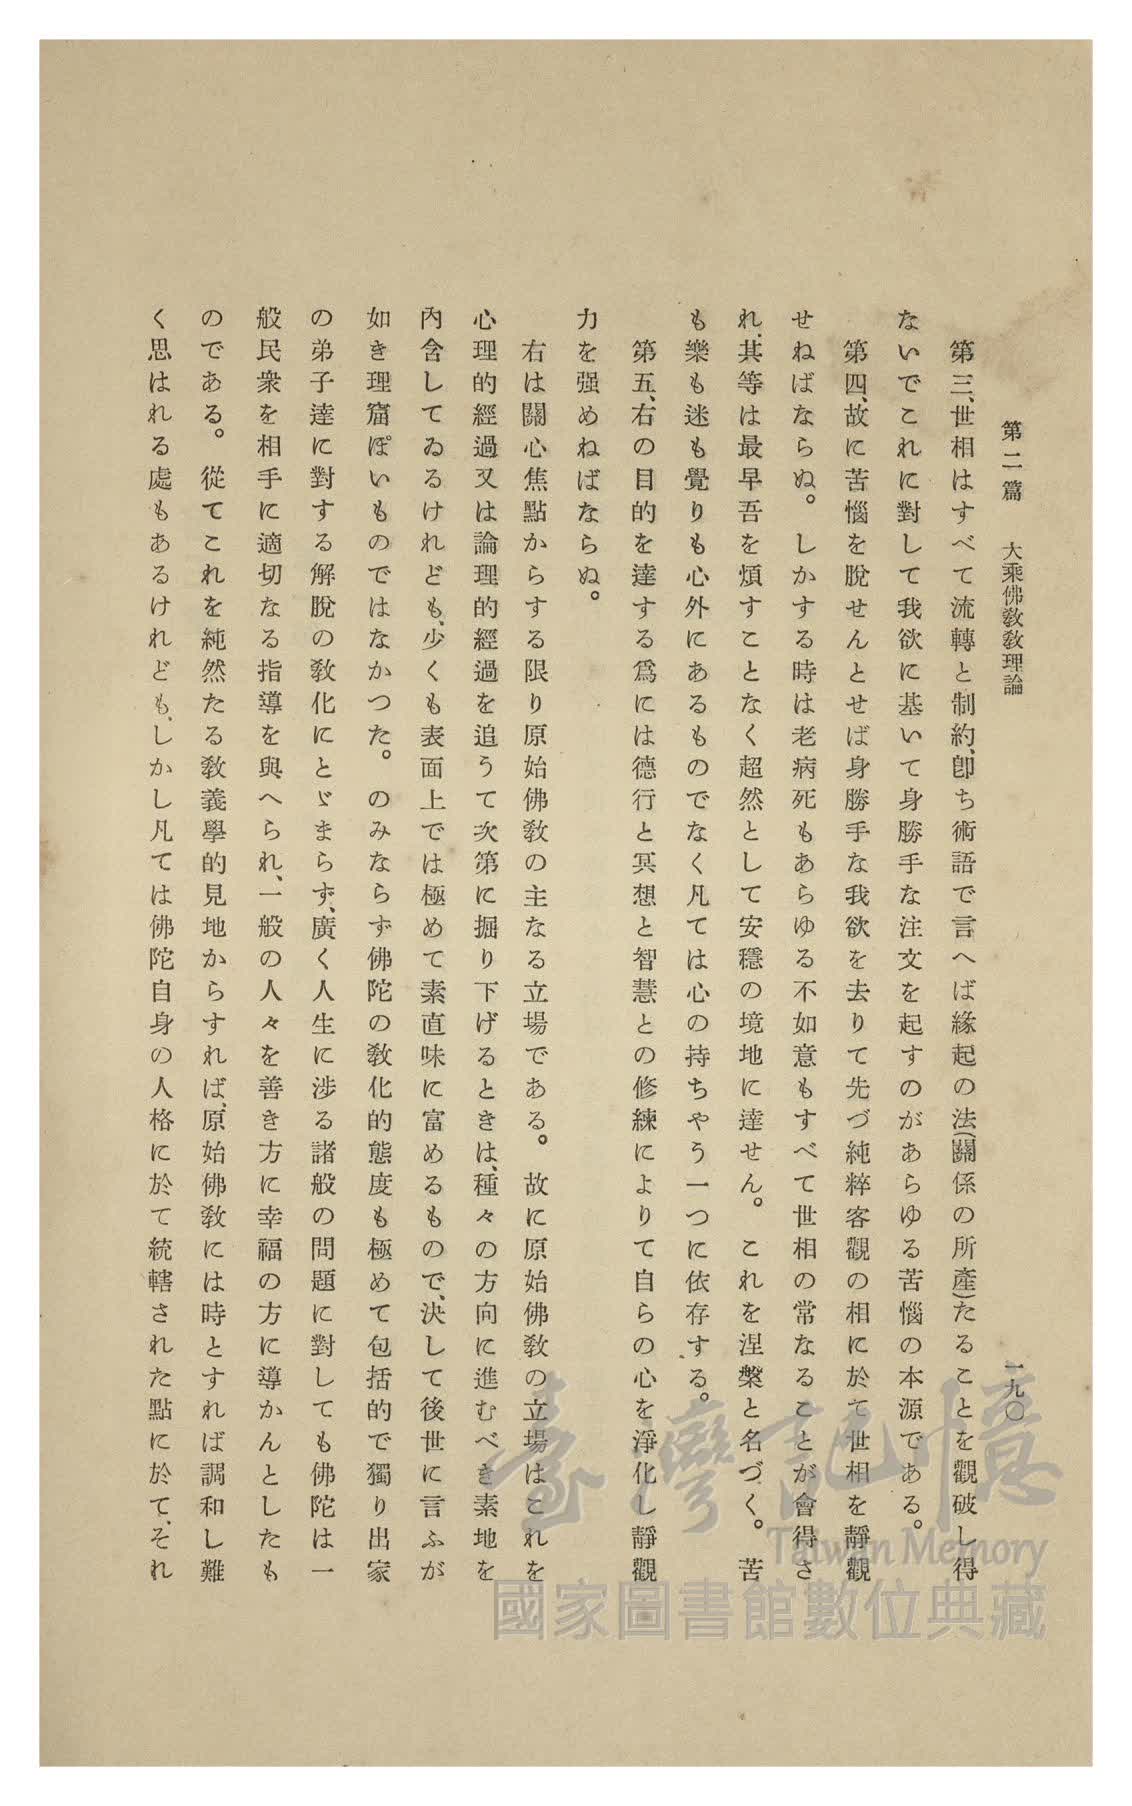 第二篇　大乘佛敎敎理論　一九〇
第三、世相はすべて流轉と制約、卽ち術語で言へば緣起の法(關係の所產)たることを觀破し得
ないでこれに對して我欲に基いて身勝手な注文を起すのがあらゆる苦惱の本源である。
第四、故に苦惱を脫せんとせば身勝手な我欲を去りて先づ純粹客觀の相に於て世相を靜觀
せねばならぬ。しかする時は老病死もあらゆる不如意もすべて世相の常なることが會得さ
れ、其等は最早吾を煩すことなく超然として安穩の境地に達せん。これを涅槃と名づく。苦
も樂も迷も覺りも心外にあるものでなく凡ては心の持ちやう一つに依存する。
第五、右の目的を達する爲には德行と冥想と智慧との修練によりて自らの心を淨化し靜觀
力を强めねばならぬ。
右は關心焦點からする限り原始佛敎の主なる立場である。故に原始佛敎の立場はこれを
心理的經過又は論理的經過を追うて次第に掘り下げるときは、種々の方向に進むべき素地を
內含してゐるけれども、少くも表面上では極めて素直味に富めるもので、決して後世に言ふが
如き理窟ぽいものではなかつた。のみならず佛陀の敎化的態度も極めて包括的で獨り出家
の弟子達に對する解脫の敎化にとゞまらず、廣く人生に涉る諸般の問題に對しても佛陀は一
般民衆を相手に適切なる指導を與へられ、一般の人々を善き方に幸福の方に導かんとしたも
のである。從てこれを純然たる敎義學的見地からすれば、原始佛敎には時とすれば調和し難
く思はれる處もあるけれども、しかし凡ては佛陀自身の人格に於て統轄された點に於て、それ
臺灣記憶
Taiwan Memory
國家圖書館數位典藏